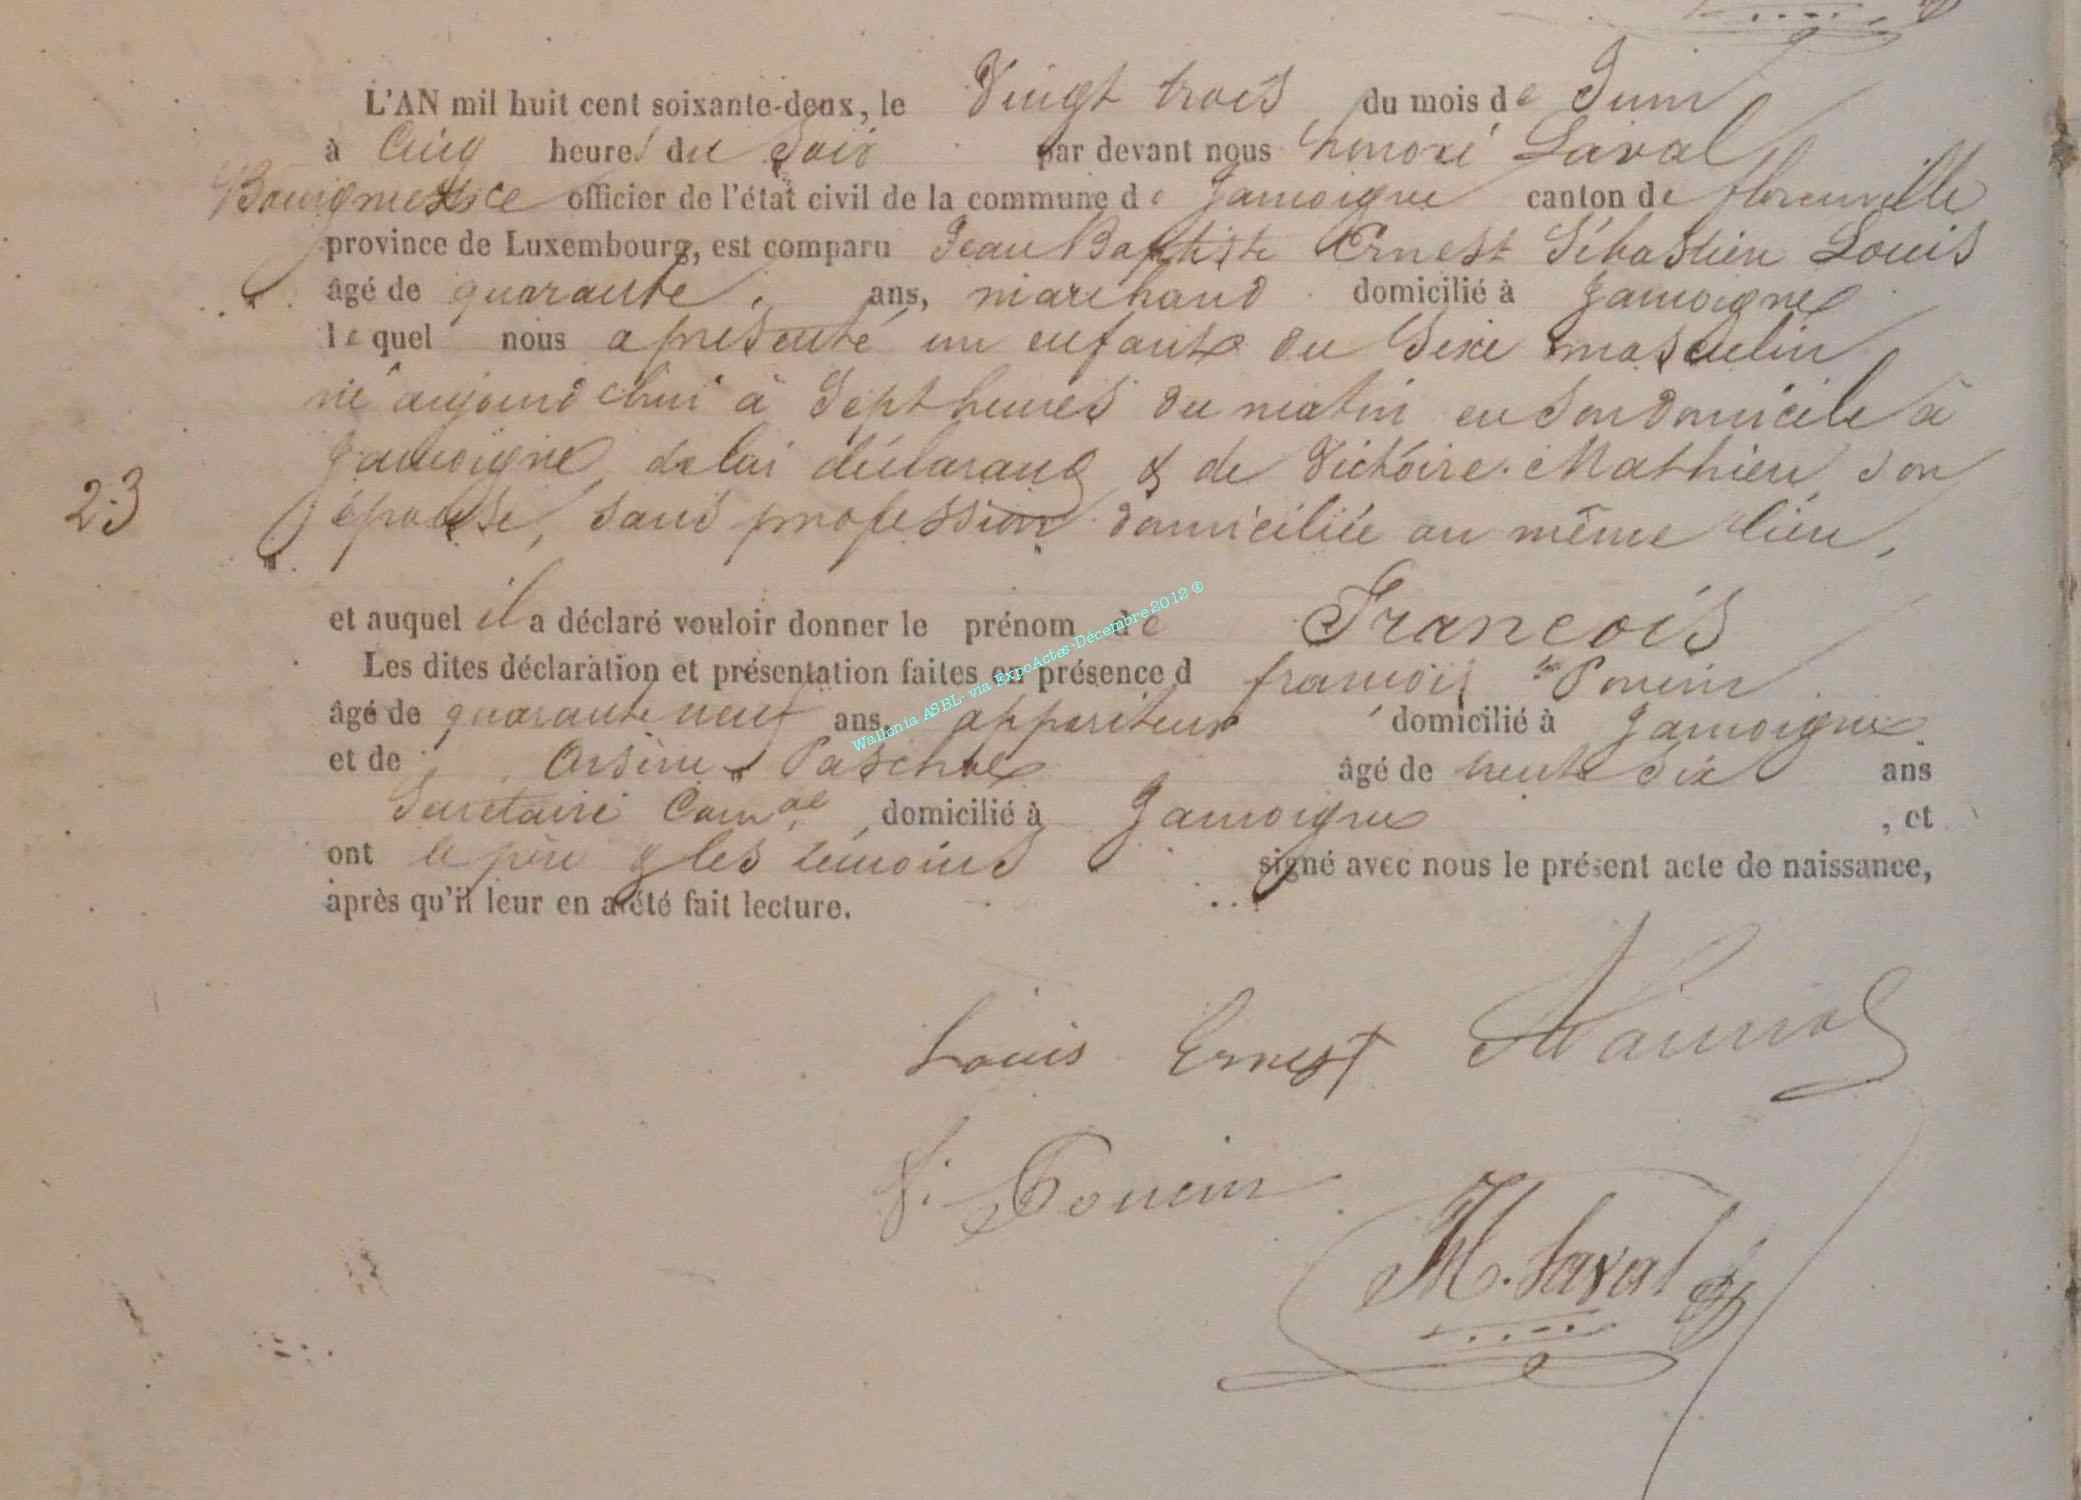 L'AN mil huit cent soixante-deux, le Vingt trois du mois de Juin
à Cinq heures du Soir par devant nous honoré Laval
Bourgmestre officier de l'état civil de la commune de Jamoigne canton de florenville
province de Luxembourg, est comparu Jean Baptiste Ernest Sébastien Louis
âgé de quarante ans, marchand domicilié à Jamoigne
lequel nous a présenté un enfant du Sexe masculin
né aujourd'hui à Sept heures du matin en Son domicile à
Jamoigne, de lui déclarant & de Victoire Mathieu son
23
épouse, sans profession domiciliée au même lieu,
et auquel il a déclaré vouloir donner le prénom de François
Les dites déclaration et présentation faites en présence d françois Poncin
âgé de quarante neuf ans, appariteur domicilié à Jamoigne
et de Arsène Paschal âgé de trente Six ans
Secrétaire Com.al domicilié à Jamoigne , et
ont le père & les témoins signé avec nous le présent acte de naissance,
après qu'il leur en a été fait lecture.
Wallonia ASBL- via ExpoActes-Décembre 2012 ®
Louis Ernest
f. Poncin
H. Laval